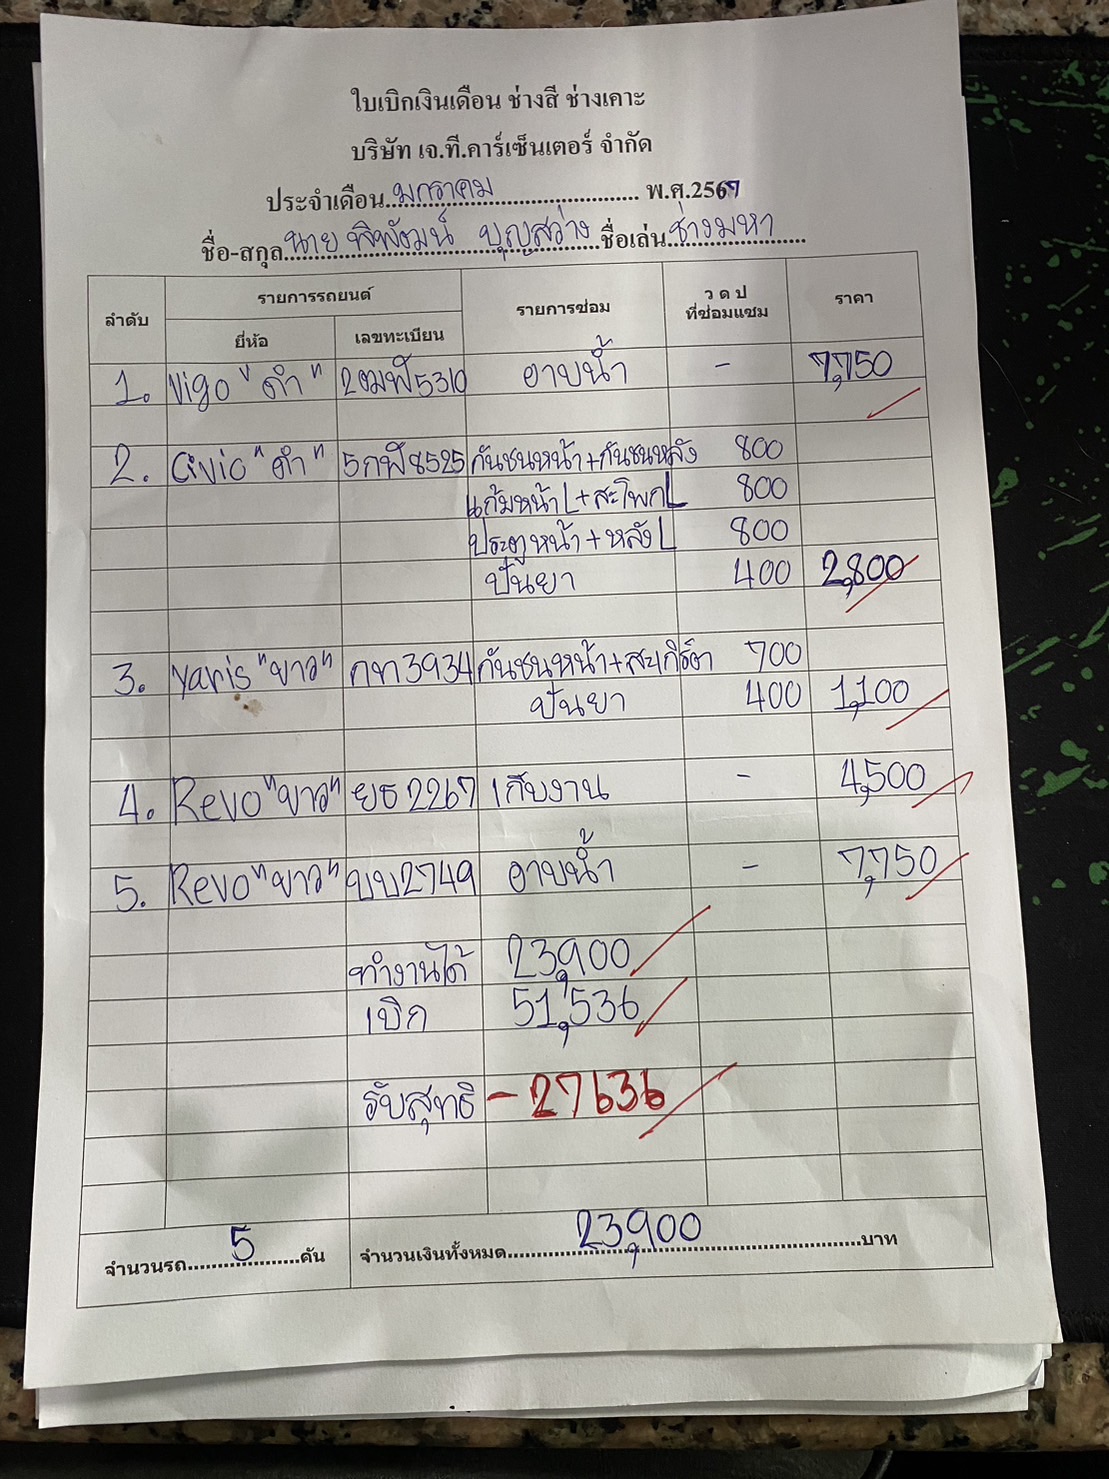 ใบเบิกเงินเดือน ช่างสี ช่างเคาะ
บริษัท เจ.ที.คาร์เซ็นเตอร์ จำกัด
ประจำเดือน...มกราคม.......................... พ.ศ.2567
ชื่อ-สกุล..นาย พิพัฒน์ บุญสว่าง..ชื่อเล่น..ช่างมหา......
ลำดับ รายการรถยนต์ รายการซ่อม ว ด ป ที่ซ่อมแซม ราคา
ยี่ห้อ เลขทะเบียน
1. Vigo "ดำ" 2ฒฬ5310 อาบน้ำ - 7,750
2. Civic "ดำ" 5กฬ8525 กันชนหน้า+กันชนหลัง 800
แก้มหน้าL+สะโพกL 800
ประตูหน้า+หลังL 800
ปั่นยา 400 2,800
3. Yaris "ขาว" กท3934 กันชนหน้า+สเกิร์ต 700
ปั่นยา 400 1,100
4. Revo "ขาว" ยธ2267 เก็บงาน - 4,500
5. Revo "ขาว" บบ2749 อาบน้ำ - 7,750
ทำงานได้ 23,900
เบิก 51,536
รับสุทธิ -27636
จำนวนรถ.......5.......คัน จำนวนเงินทั้งหมด..........23,900..........บาท